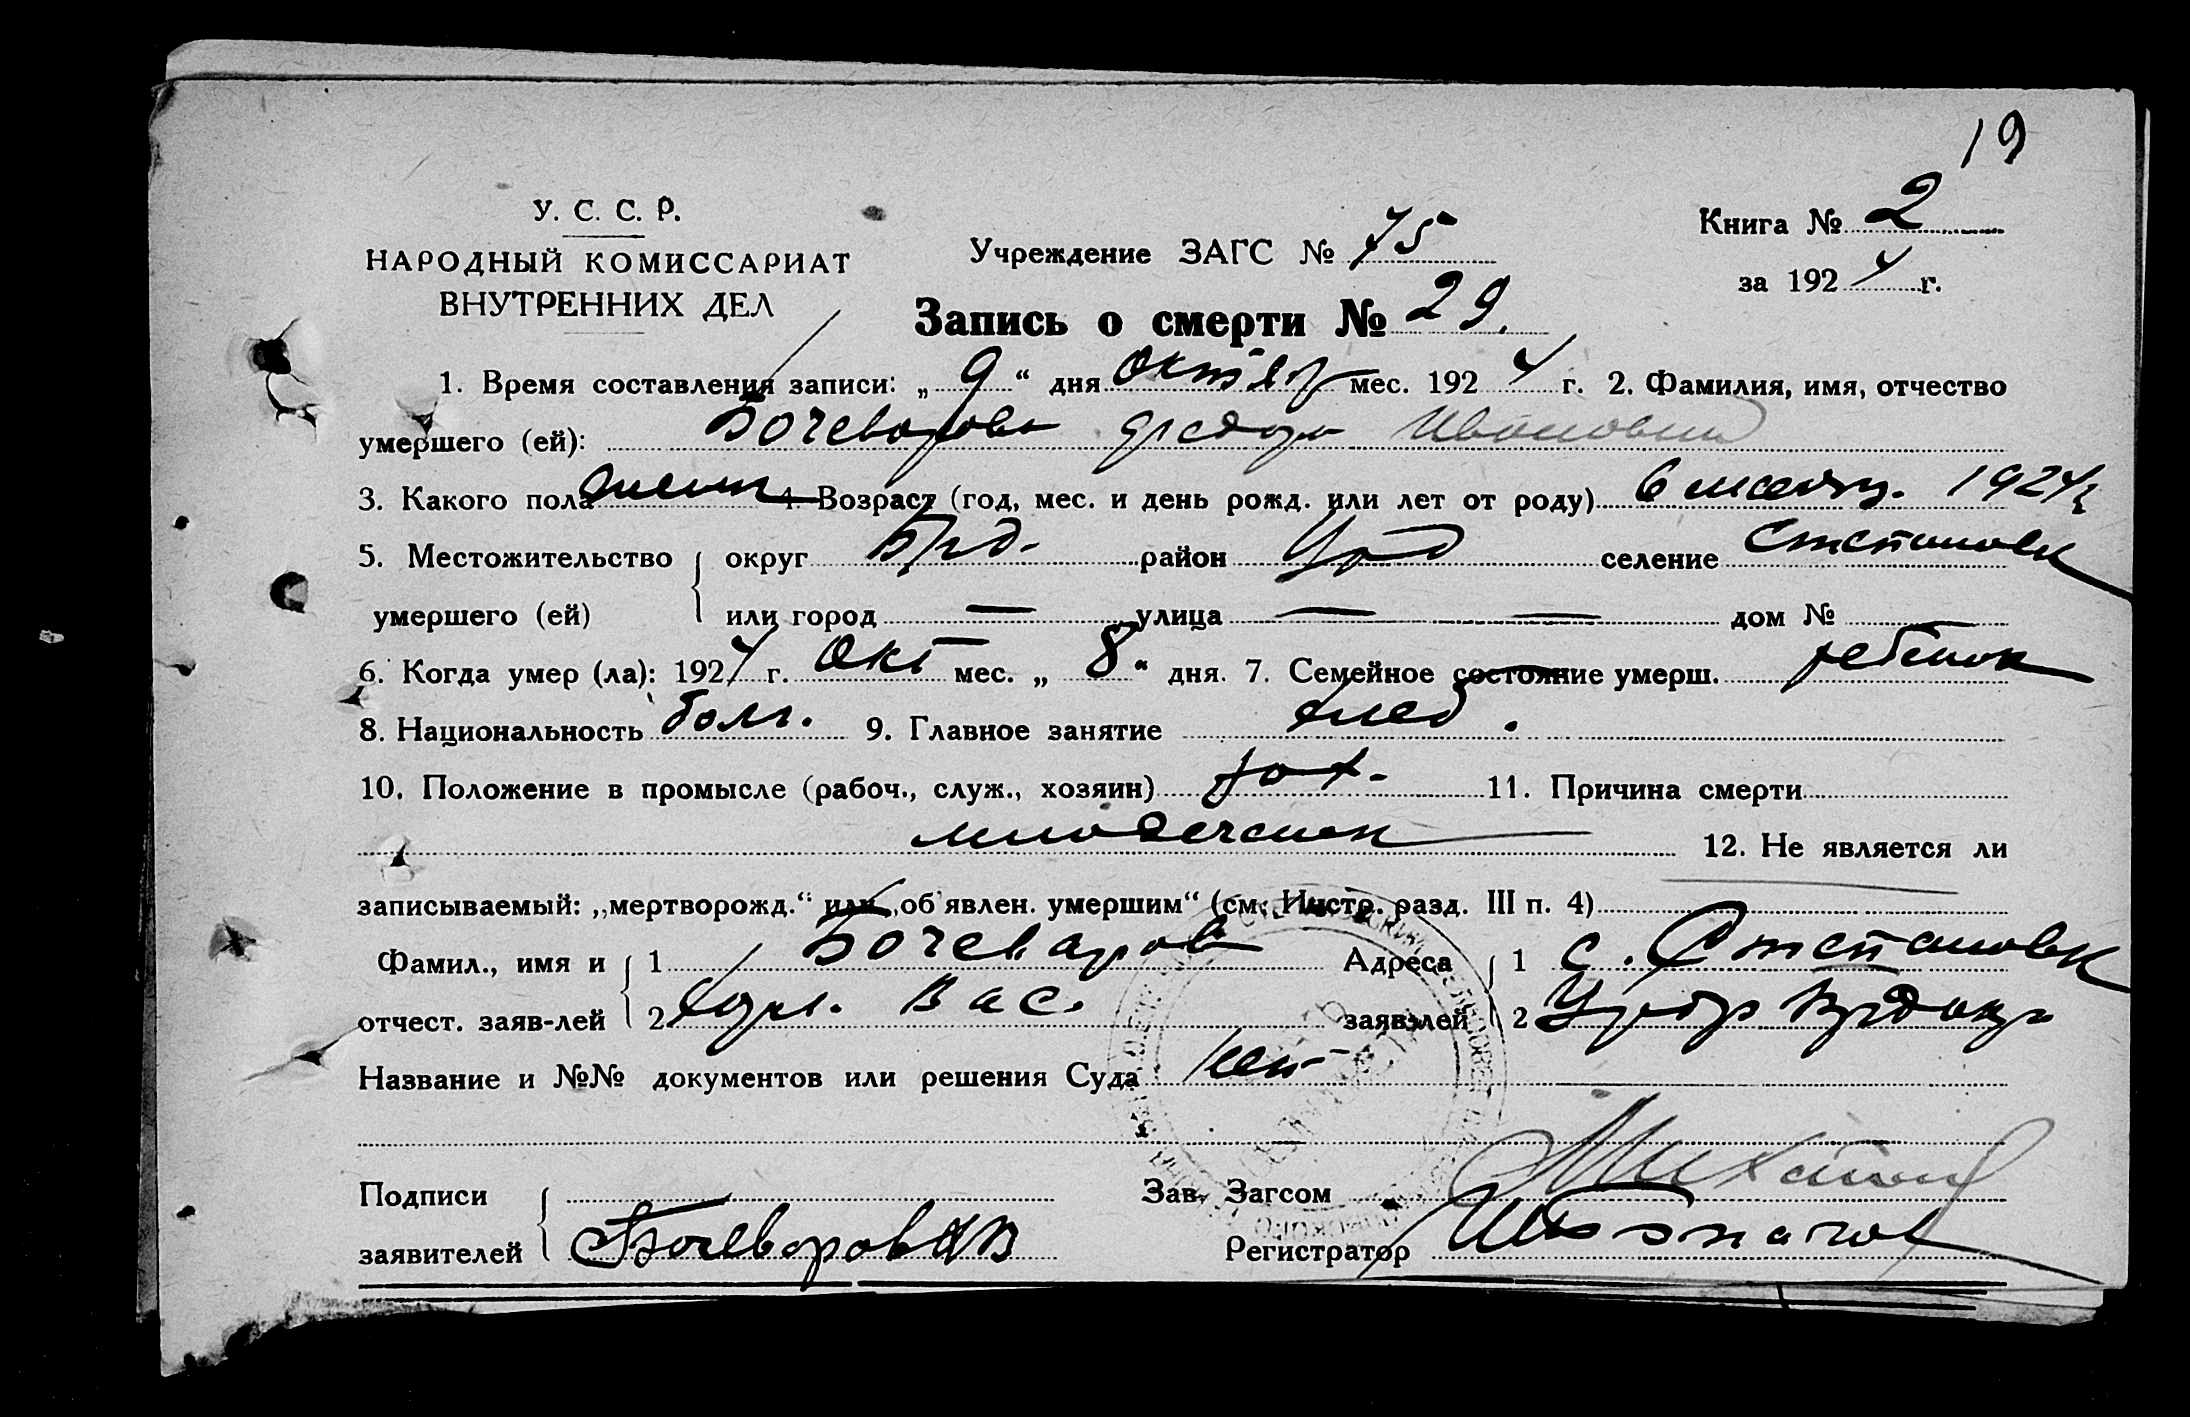 19
У. С. С. Р.
НАРОДНЫЙ КОМИССАРИАТ
ВНУТРЕННИХ ДЕЛ
Учреждение ЗАГС № 75
Книга № 2
за 1924 г.
Запись о смерти № 29.
1. Время составления записи: „ 9 “ дня мес. 1924 г. 2. Фамилия, имя, отчество
умершего (ей): Бочеварова Федора Ивановна
3. Какого пола женск 4. Возраст (год, мес. и день рожд. или лет от роду) 6 1924 г
5. Местожительство округ район селение Степановк
умершего (ей) или город — улица — — дом №
6. Когда умер (ла): 1924 г. Окт мес. „ 8 “ дня. 7. Семейное состояние умерш. ребенок
8. Национальность болг. 9. Главное занятие хлеб.
10. Положение в промысле (рабоч., служ., хозяин) 11. Причина смерти
младенческ
12. Не является ли
записываемый: „мертворожд.“ или „об'явлен. умершим“ (см. Инстр. разд. III п. 4)
Фамил., имя и 1 Бочеваров Адреса 1 с. Степановк
отчест. заяв-лей 2 Вас. заяв-лей 2
Название и №№ документов или решения Суда нет
Подписи Зав. Загсом
заявителей Бочеваров Регистратор